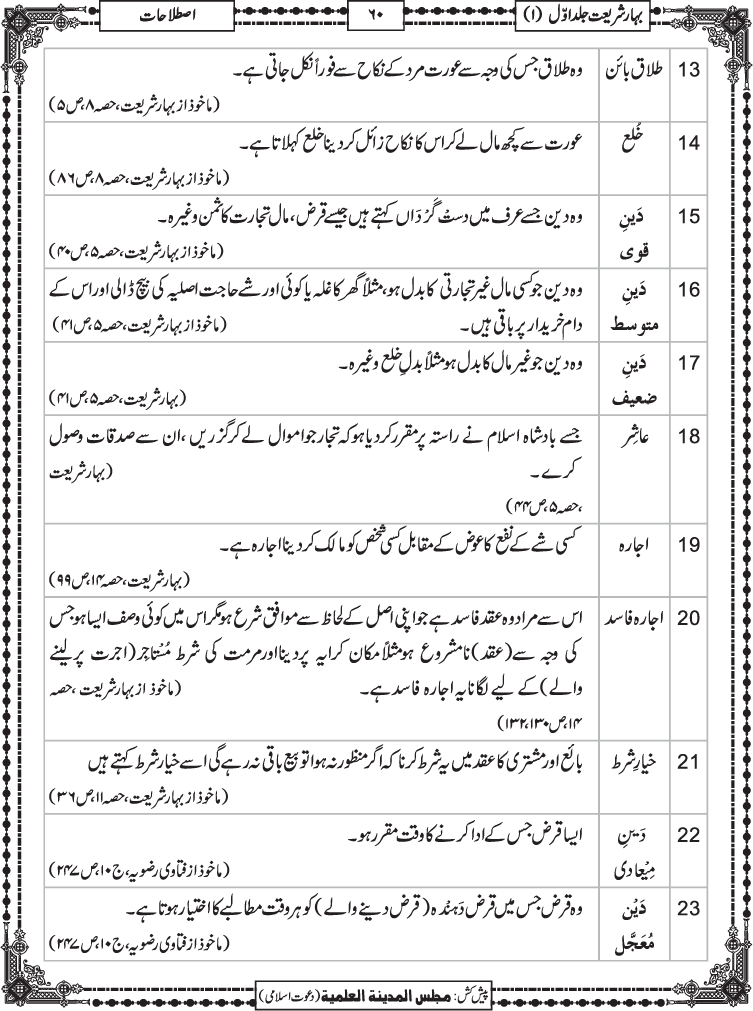 بہارِشریعت جلد اوّل (۱)
۶۰
اصطلاحات
13 طلاق بائن وہ طلاق جس کی وجہ سے عورت مرد کے نکاح سے فوراً نکل جاتی ہے۔
(ماخوذ از بہار شریعت، حصہ ۸، ص ۵)
14 خُلع عورت سے کچھ مال لے کر اس کا نکاح زائل کر دینا خلع کہلاتا ہے۔
(ماخوذ از بہار شریعت، حصہ ۸، ص ۸۶)
15 دَینِ وہ دین جسے عرف میں دستْ گَرْدَاں کہتے ہیں جیسے قرض، مال تجارت کا ثمن وغیرہ۔
قوی (ماخوذ از بہار شریعت، حصہ ۵، ص ۴۰)
16 دَینِ وہ دین جو کسی مال غیر تجارتی کا بدل ہو، مثلاً گھر کا غلہ یا کوئی اور شے حاجت اصلیہ کی بیچ ڈالی اور اس کے
متوسط دام خریدار پر باقی ہیں۔ (ماخوذ از بہار شریعت، حصہ ۵، ص ۴۱)
17 دَینِ وہ دین جو غیر مال کا بدل ہو مثلاً بدلِ خلع وغیرہ۔
ضعیف (بہار شریعت، حصہ ۵، ص ۴۱)
18 عاشِر جسے بادشاہ اسلام نے راستہ پر مقرر کر دیا ہو کہ تجار جو اموال لے کر گزریں، ان سے صدقات وصول
کرے۔ (بہار شریعت
، حصہ ۵، ص ۴۴)
19 اجارہ کسی شے کے نفع کا عوض کے مقابل کسی شخص کو مالک کر دینا اجارہ ہے۔
(بہار شریعت، حصہ ۱۴، ص ۹۹)
20 اجارہ فاسد اس سے مراد وہ عقد فاسد ہے جو اپنی اصل کے لحاظ سے موافق شرع ہو مگر اس میں کوئی وصف ایسا ہو جس
کی وجہ سے (عقد) نامشروع ہو مثلاً مکان کرایہ پر دینا اور مرمت کی شرط مُستاجِر (اجرت پر لینے
والے) کے لیے لگانا یہ اجارہ فاسد ہے۔ (ماخوذ از بہار شریعت، حصہ
۱۴، ص ۱۳۰، ۱۳۲)
21 خیارِ شرط بائع اور مشتری کا عقد میں یہ شرط کرنا کہ اگر منظور نہ ہوا تو بیع باقی نہ رہے گی اسے خیار شرط کہتے ہیں
(ماخوذ از بہار شریعت، حصہ ۱۱، ص ۳۶)
22 دَینِ ایسا قرض جس کے ادا کرنے کا وقت مقرر ہو۔
مِیْعادی (ماخوذ از فتاوی رضویہ، ج ۱۰، ص ۲۴۷)
23 دَیْن وہ قرض جس میں قرض دَہندہ (قرض دینے والے) کو ہر وقت مطالبے کا اختیار ہوتا ہے۔
مُعَجَّل (ماخوذ از فتاوی رضویہ، ج ۱۰، ص ۲۴۷)
پیش کش: مجلس المدینة العلمیة (دعوت اسلامی)